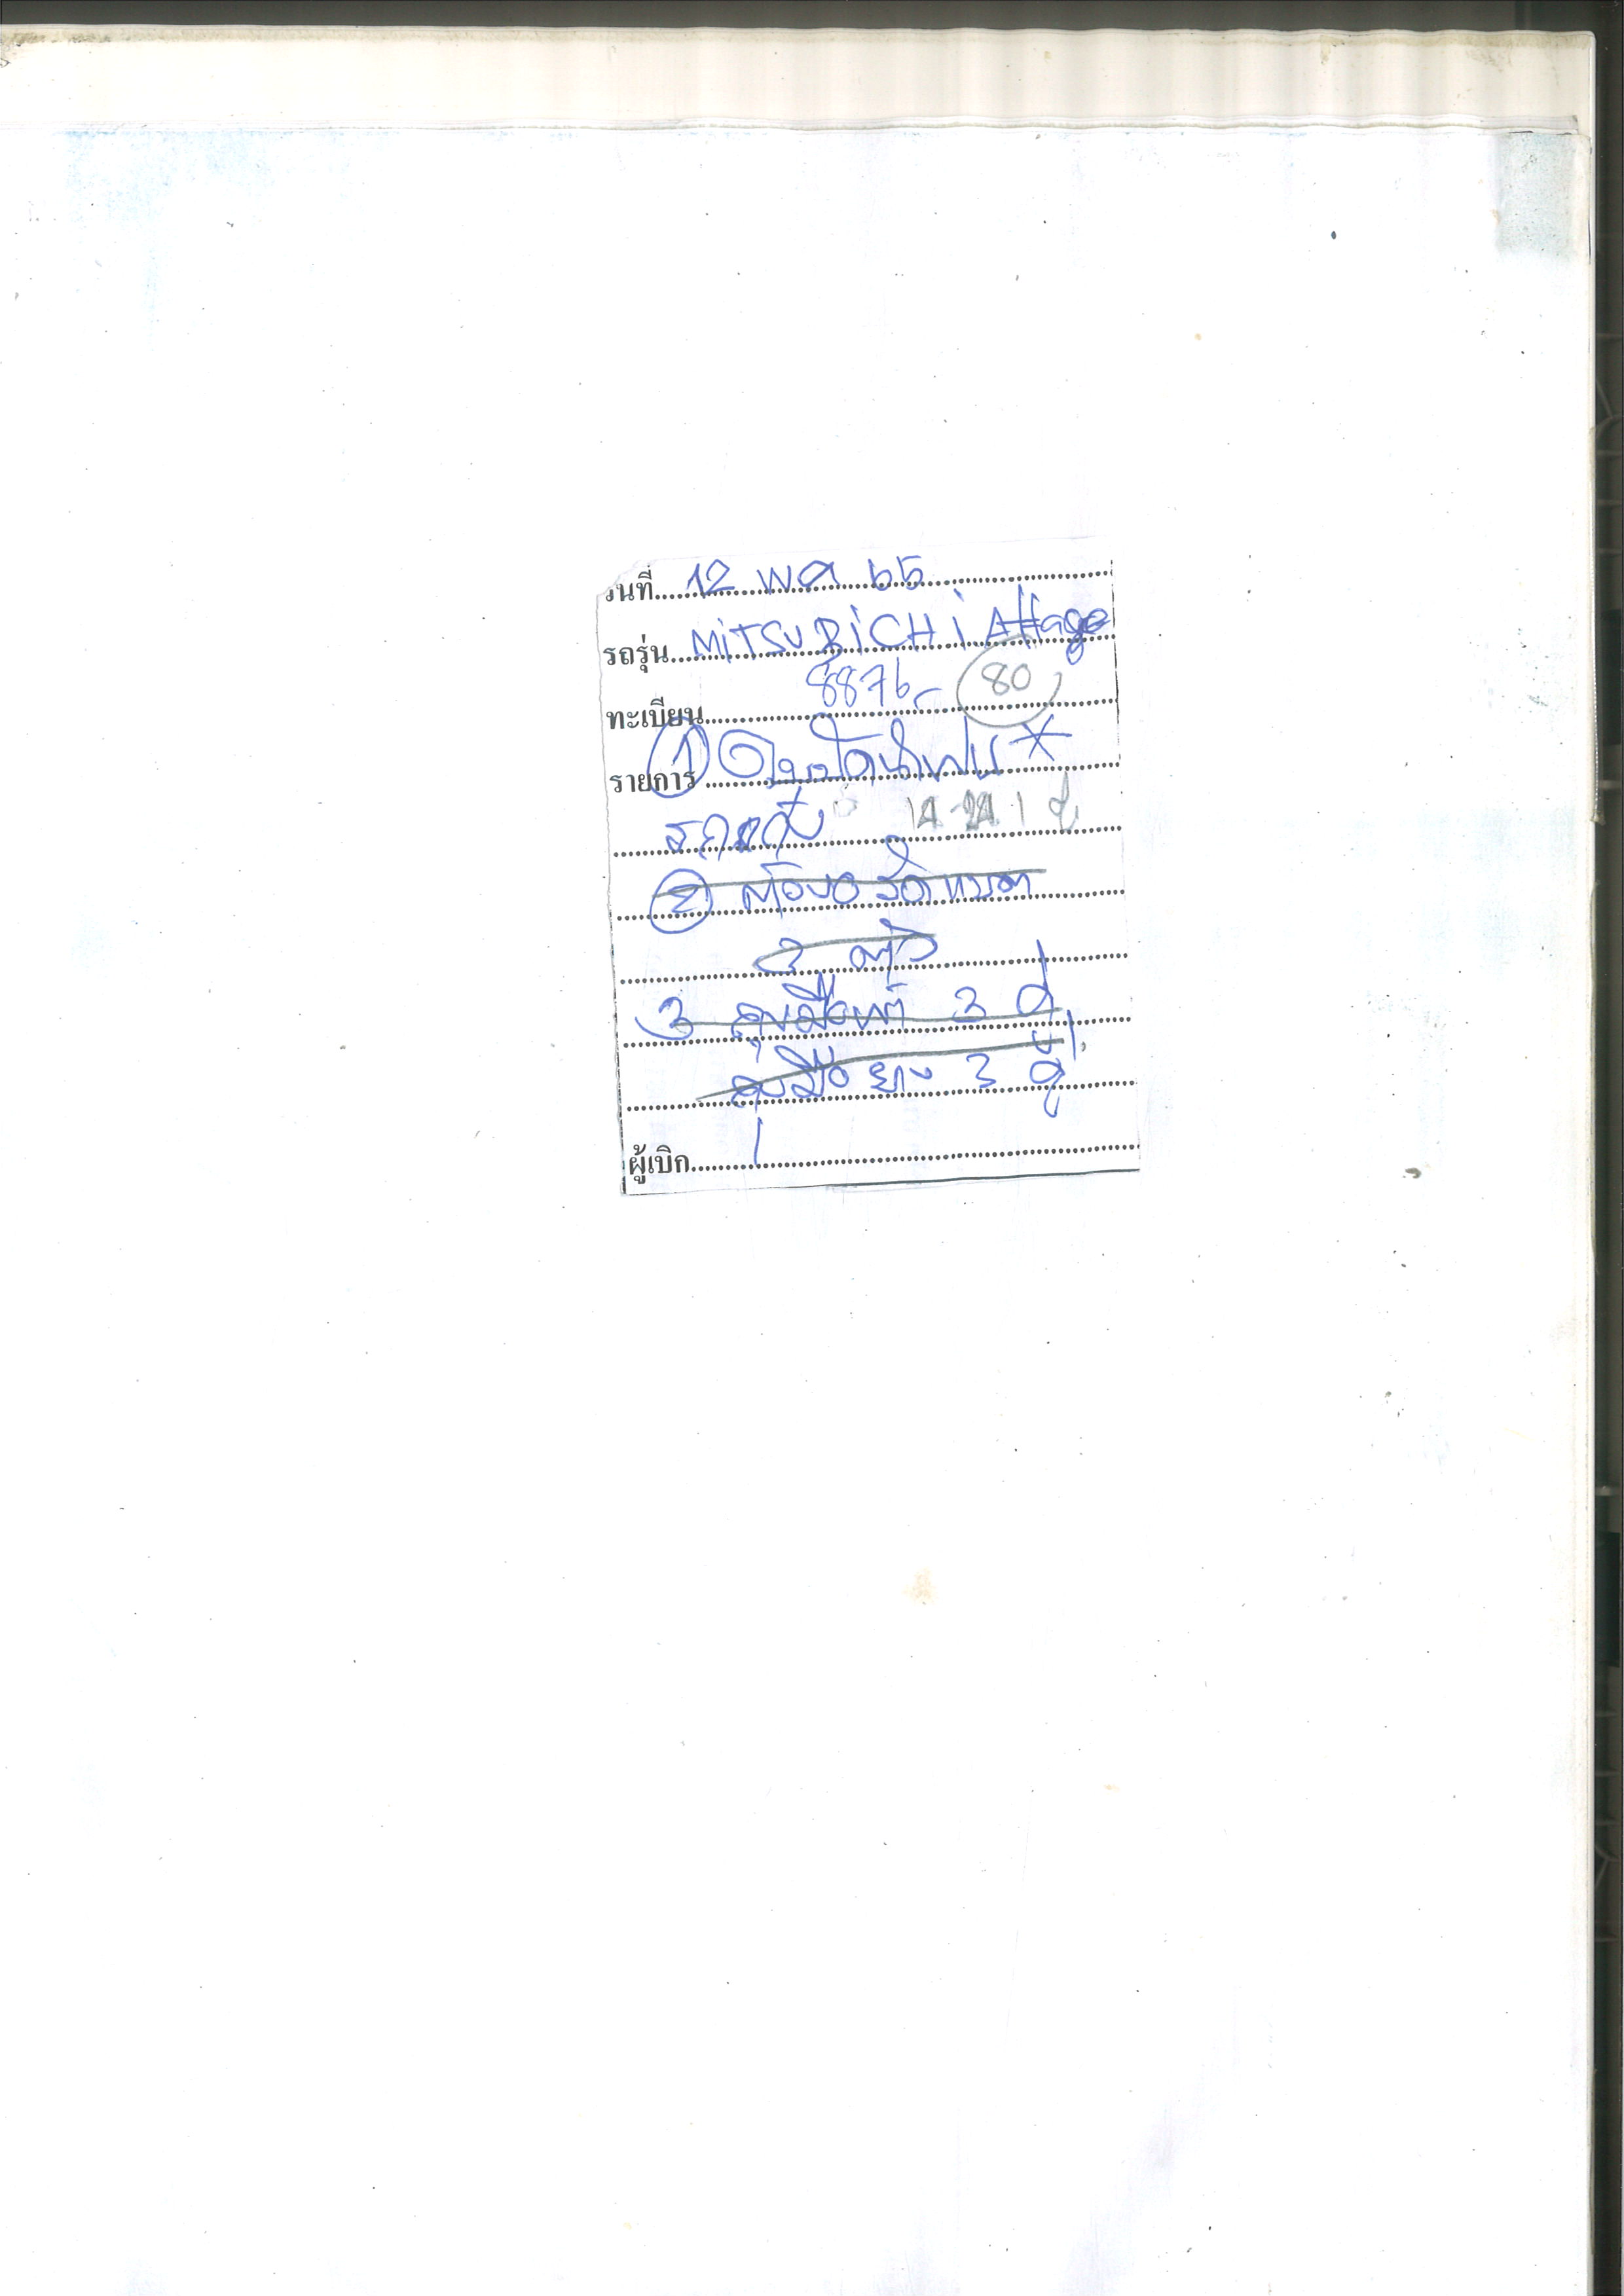 วันที่ 12 พค 65
รถรุ่น MiTSUBiCHi Attage
ทะเบียน 8876 80
รายการ ① ใบปัดน้ำฝน *
② ก้อบอ รัดแรมตา
3 ตัว
3 ถุงมือผ้า 3 คู่
ถุงมือ ยาง 3 คู่
ผู้เบิก